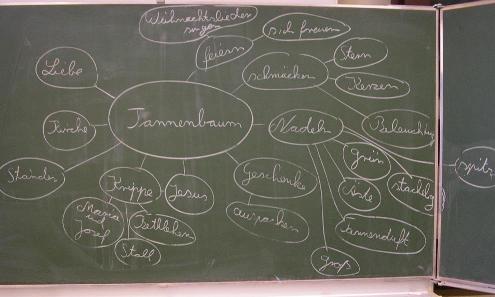 Weihnachtslieder
singen
sich freuen
feiern
Stern
schmücken
Kerzen
Liebe
Tannenbaum
Nadeln
Beleuchtung
Kirche
grün
spitz
Ständer
Krippe
Jesus
Geschenke
Äste
stachelig
Maria
Josef
Betlehem
auspacken
Tannenduft
Stall
groß